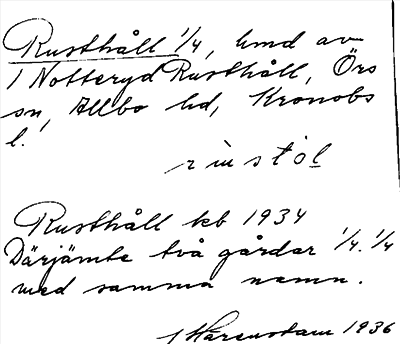 Rusthåll 1/4, hmd av
1 Notteryd Rusthåll, Örs
sn, Allbo hd, Kronobs
l.
Rusthåll keb 1934
Därjämte två gårdar 1/4. 1/4
med samma namn.
1936